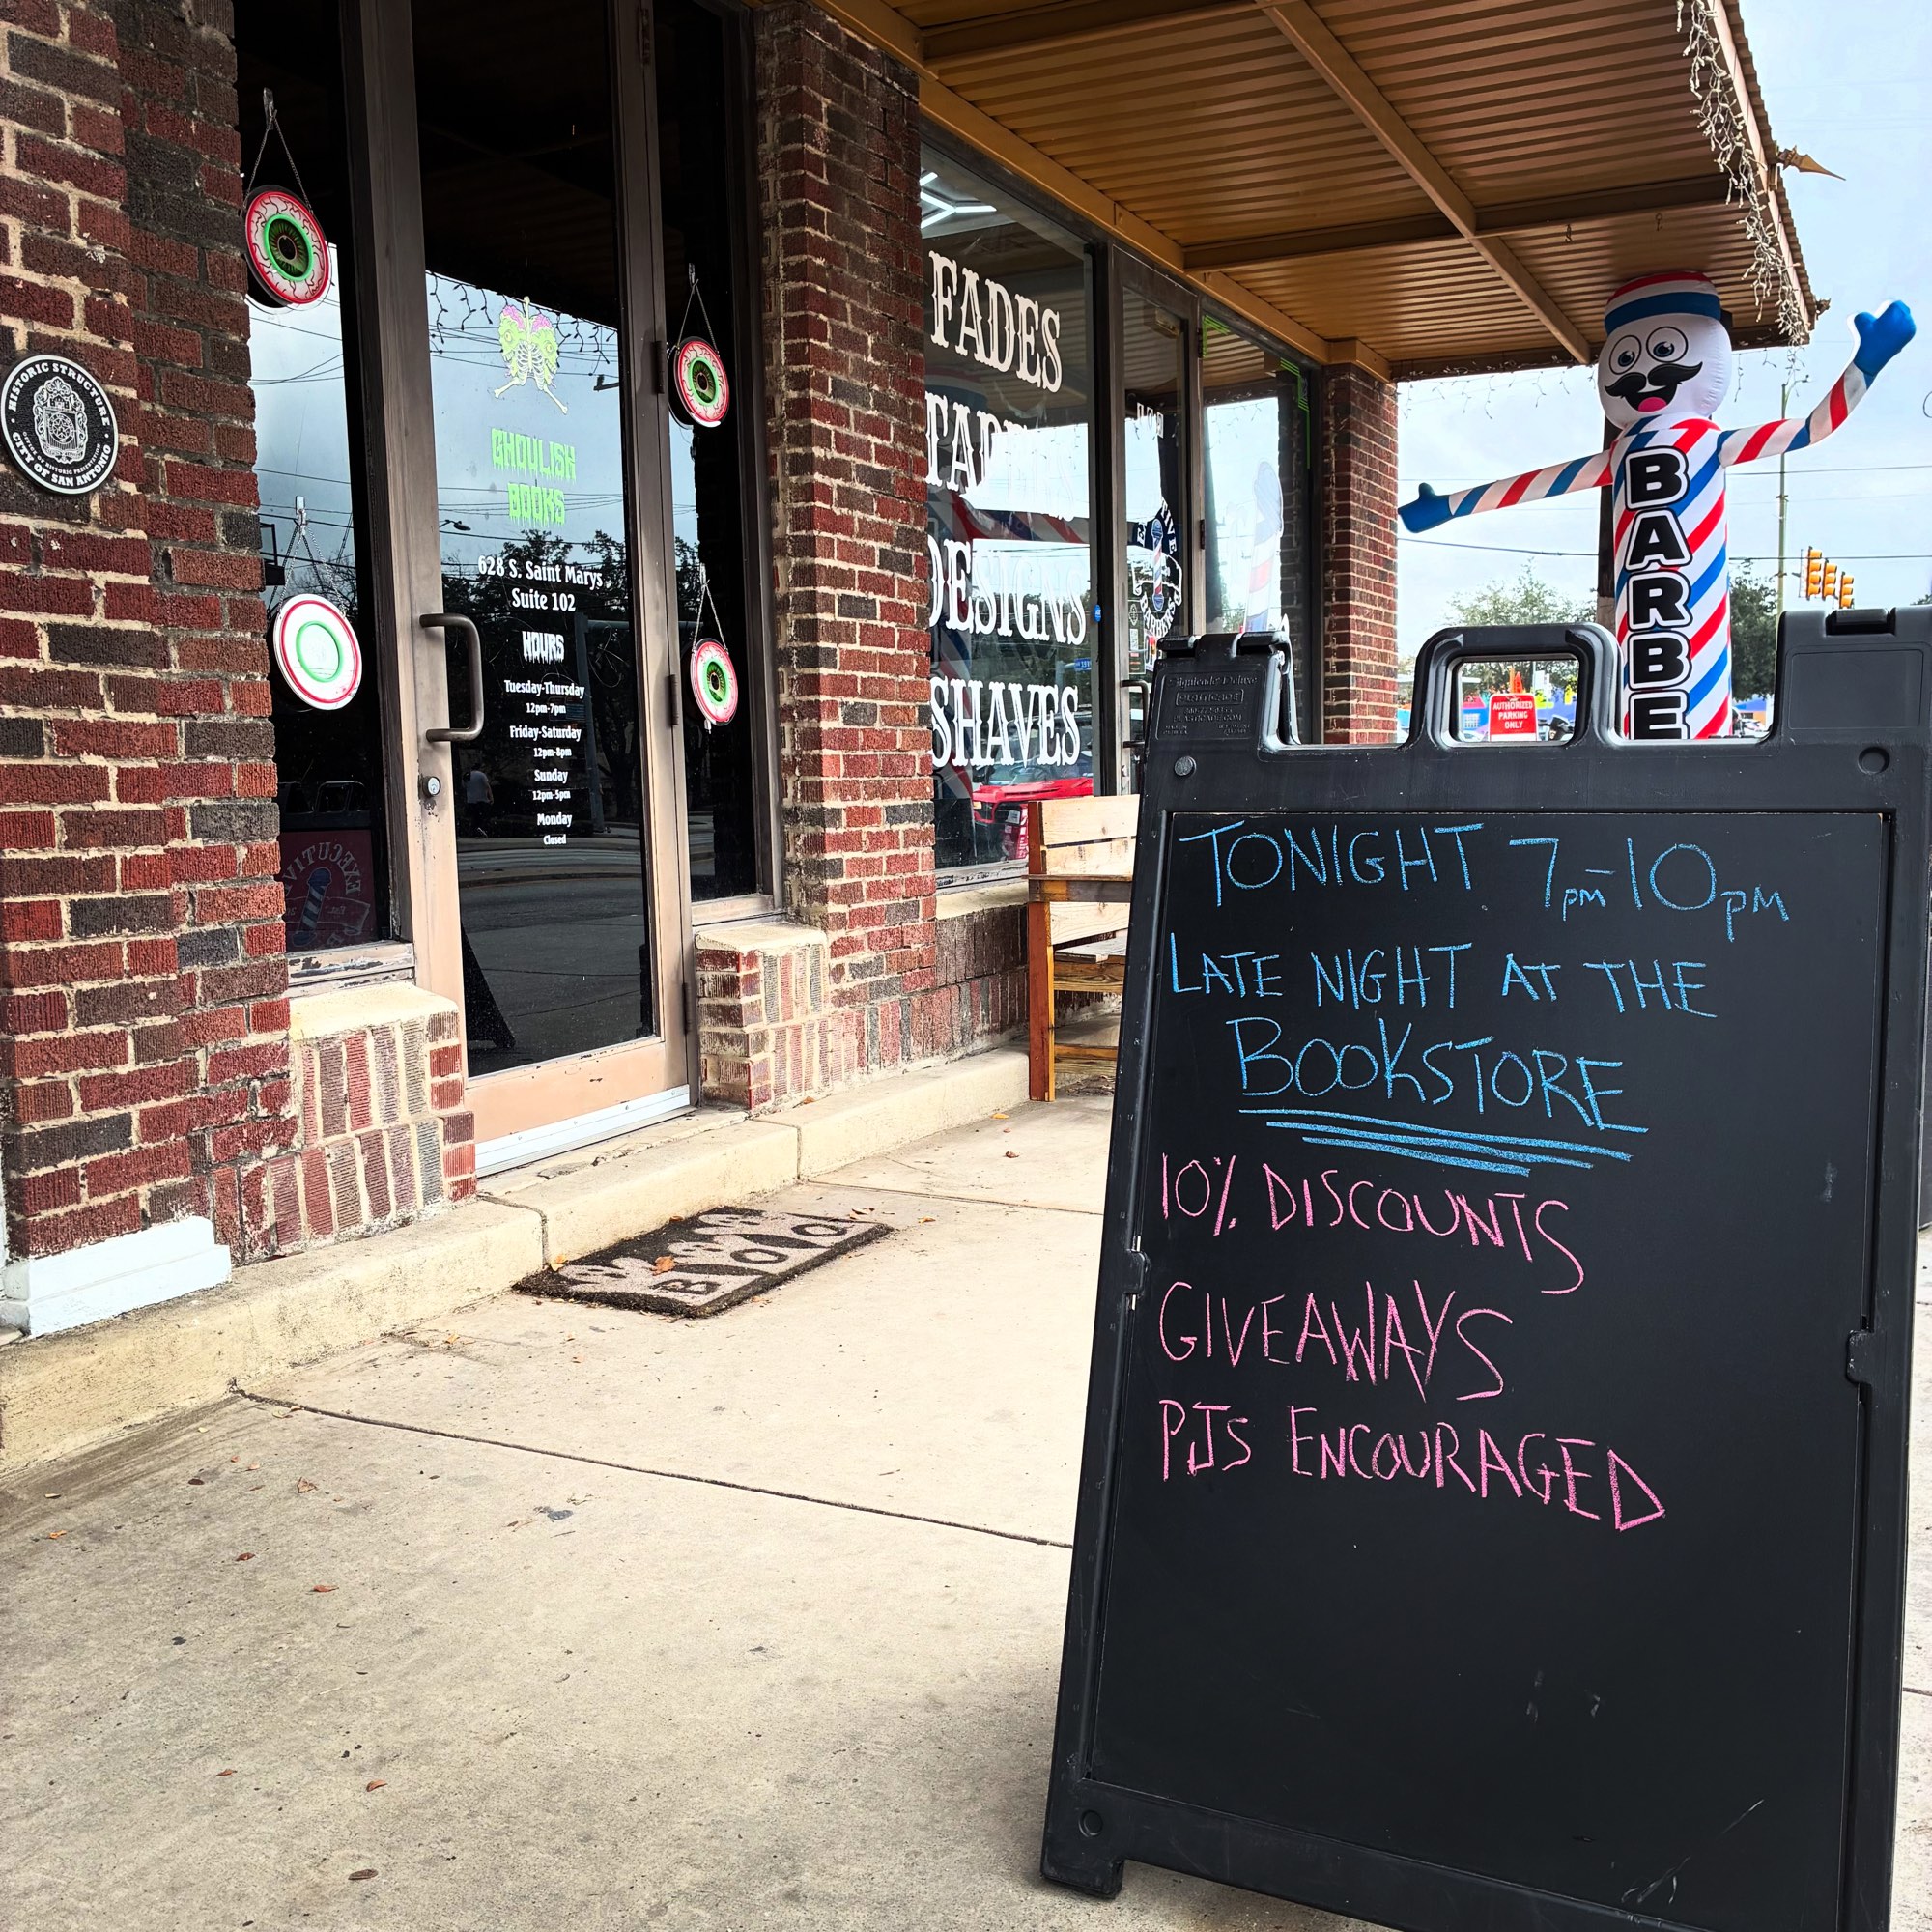 HISTORIC STRUCTURE
OFFICE OF HISTORIC PRESERVATION
CITY OF SAN ANTONIO
GHOULISH
BOOKS
628 S. Saint Marys
Suite 102
HOURS
Tuesday-Thursday
12pm-7pm
Friday-Saturday
12pm-8pm
Sunday
12pm-5pm
Monday
Closed
EXECUTIV
FADES
DESIGNS
SHAVES
BARBE
AUTHORIZED
PARKING
ONLY
BOO!
Signicade Deluxe
PLASTICADE
TONIGHT 7pm-10pm
LATE NIGHT AT THE
BOOKSTORE
10% DISCOUNTS
GIVEAWAYS
PJS ENCOURAGED